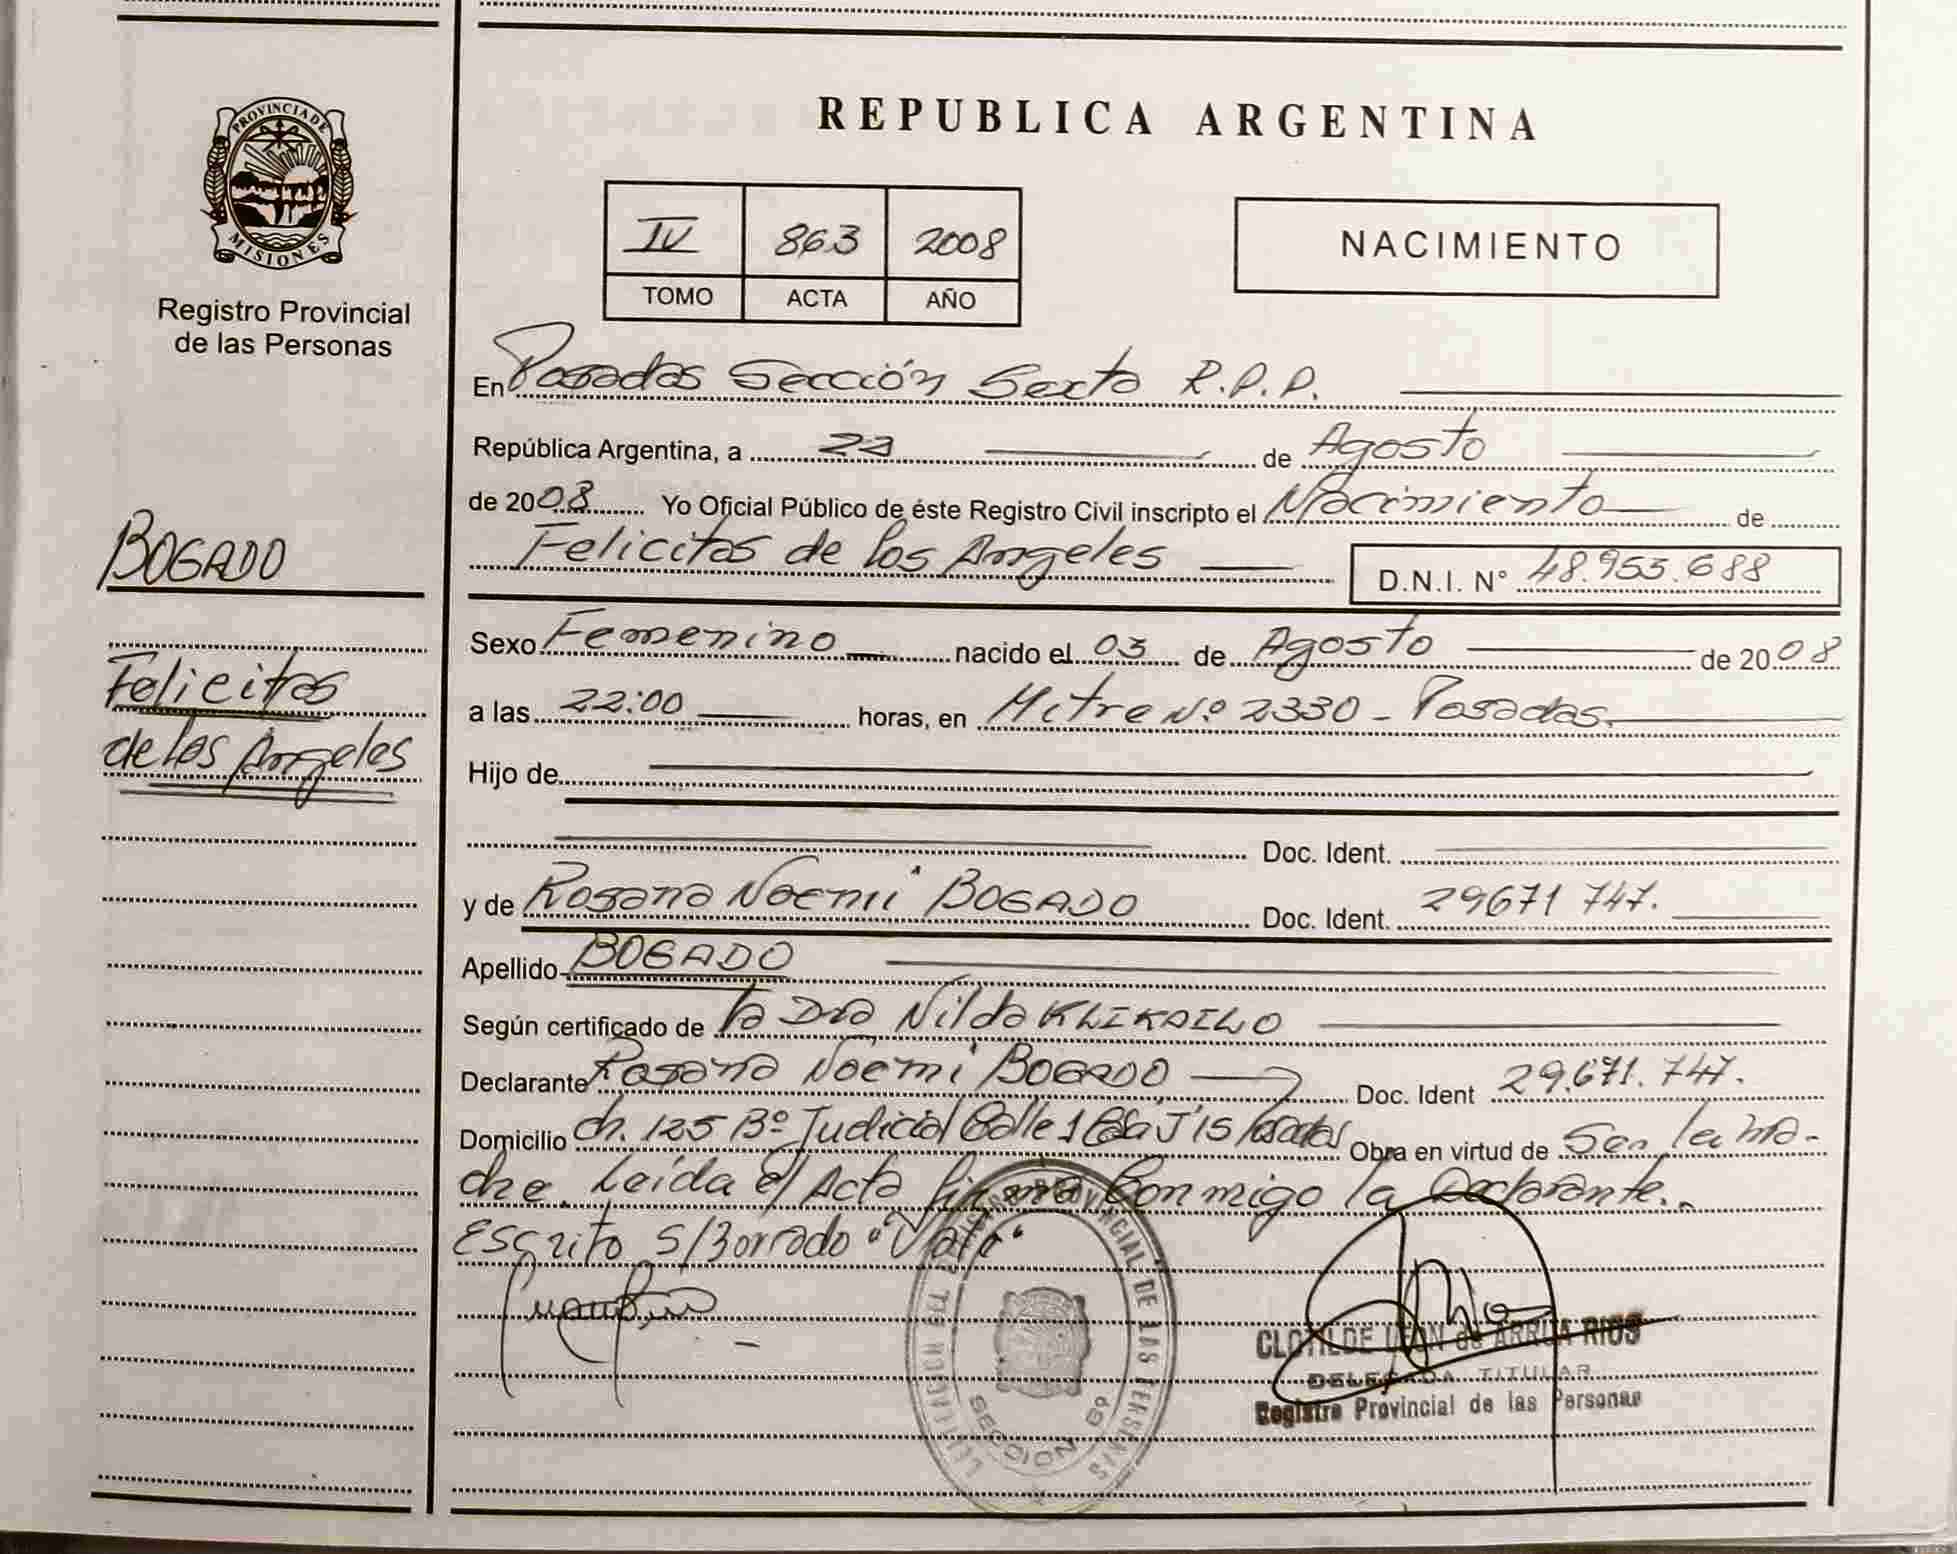 PROVINCIA DE
MISIONES
Registro Provincial
de las Personas
BOGADO
Felicitas
de los Angeles
REPUBLICA ARGENTINA
IV 863 2008
TOMO ACTA AÑO
NACIMIENTO
En Posadas Sección Sexta R.P.P.
República Argentina, a 22 de Agosto
de 2008 Yo Oficial Público de éste Registro Civil inscripto el Nacimiento de
Felicitas de los Angeles D.N.I. N° 48.953.688
Sexo Femenino nacido el 03 de Agosto de 2008
a las 22:00 horas, en Mitre Nº 2330 - Posadas.
Hijo de
Doc. Ident.
y de Rosana Noemí BOGADO Doc. Ident. 29671747.
Apellido BOGADO
Según certificado de la Dra Nilda
Declarante Rosana Noemi BOGADO Doc. Ident 29.671.747.
Domicilio Ch. 125 Bº Judicial Calle 1 Casa 15 Posadas Obra en virtud de Ser la ma-
dre. Leída el Acta firma Conmigo la Declarante.
Escrito S/Borrado "Vale"
DELEGACION DEL REGISTRO PROVINCIAL DE LAS PERSONAS
SECCION 6º
CLOTILDE LEON de ARRUA RIOS
DELEGADA TITULAR
Registro Provincial de las Personas